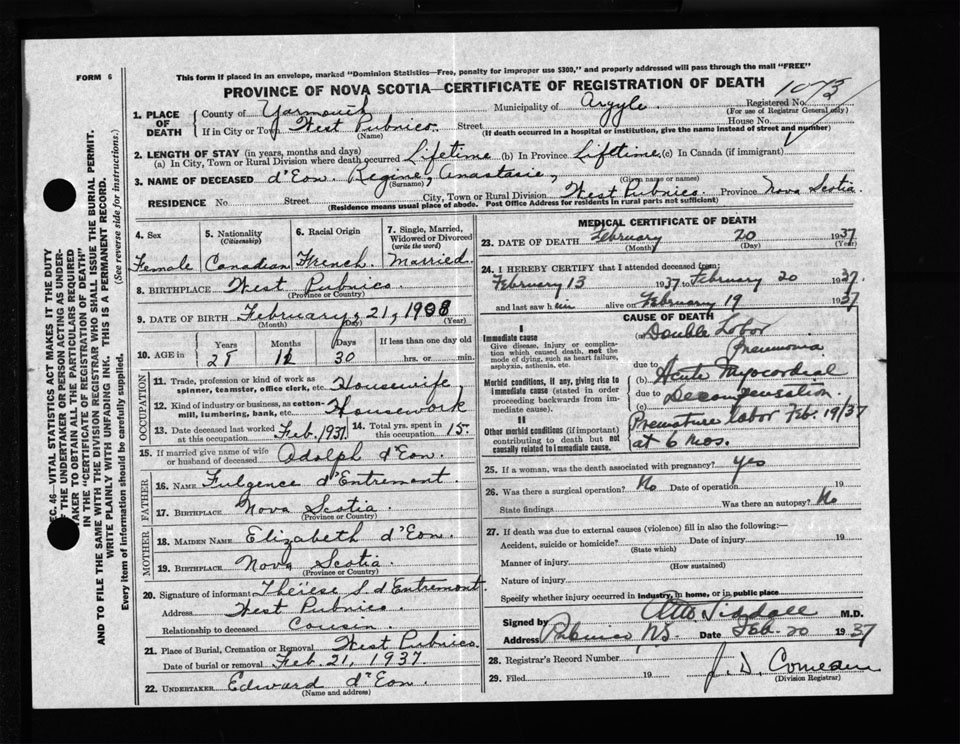 FORM 6
This form if placed in an envelope, marked "Dominion Statistics—Free, penalty for improper use $300," and properly addressed will pass through the mail "FREE"
PROVINCE OF NOVA SCOTIA—CERTIFICATE OF REGISTRATION OF DEATH
1073
1. PLACE OF DEATH
County of Yarmouth Municipality of Argyle. Registered No.
(For use of Registrar General only)
If in City or Town West Pubnico. Street House No.
(Name) (If death occurred in a hospital or institution, give the name instead of street and number)
2. LENGTH OF STAY (in years, months and days)
(a) In City, Town or Rural Division where death occurred Lifetime (b) In Province Lifetime, (c) In Canada (if immigrant)
3. NAME OF DECEASED d'Eon. Regine, Anastasie,
(Surname) (Given name or names)
RESIDENCE No. Street City, Town or Rural Division West Pubnico. Province Nova Scotia.
(Residence means usual place of abode. Post Office Address for residents in rural parts not sufficient)
4. Sex 5. Nationality (Citizenship) 6. Racial Origin 7. Single, Married, Widowed or Divorced (write the word)
Female Canadian French. Married.
8. BIRTHPLACE West Pubnico.
(Province or Country)
9. DATE OF BIRTH February, 21, 1908
(Month) (Day) (Year)
10. AGE in Years Months Days If less than one day old
28 11 30 hrs. or min.
OCCUPATION
11. Trade, profession or kind of work as spinner, teamster, office clerk, etc. Housewife,
12. Kind of industry or business, as cotton-mill, lumbering, bank, etc. Housework
13. Date deceased last worked at this occupation Feb. 1937. 14. Total yrs. spent in this occupation 15.
15. If married give name of wife or husband of deceased Adolph d'Eon.
FATHER
16. NAME Fulgence d'Entremont.
17. BIRTHPLACE Nova Scotia.
(Province or Country)
MOTHER
18. MAIDEN NAME Elizabeth d'Eon.
19. BIRTHPLACE Nova Scotia.
(Province or Country)
20. Signature of informant Thérèse S. d'Entremont.
Address West Pubnico.
Relationship to deceased Cousin.
21. Place of Burial, Cremation or Removal West Pubnico.
Date of burial or removal Feb. 21, 1937.
22. UNDERTAKER Edward d'Eon.
(Name and address)
MEDICAL CERTIFICATE OF DEATH
23. DATE OF DEATH February 20 1937
(Month) (Day) (Year)
24. I HEREBY CERTIFY that I attended deceased from:
February 13 1937 to February 20 1937.
and last saw h alive on February 19 1937
CAUSE OF DEATH
I
Immediate cause
Give disease, injury or complication which caused death, not the mode of dying, such as heart failure, asphyxia, asthenia, etc.
(a) Double Lobar
Pneumonia
due to
Morbid conditions, if any, giving rise to immediate cause (stated in order proceeding backwards from immediate cause).
(b) Acute Myocordial
due to Decompensation
(c)
II
Other morbid conditions (if important) contributing to death but not causally related to immediate cause.
Premature labor Feb. 19/37
at 6 mos.
25. If a woman, was the death associated with pregnancy? Yes
26. Was there a surgical operation? No Date of operation 19
State findings Was there an autopsy? No
27. If death was due to external causes (violence) fill in also the following:—
Accident, suicide or homicide? Date of injury 19
(State which)
Manner of injury
(How sustained)
Nature of injury
Specify whether injury occurred in Industry, in home, or in public place
Signed by Siddall M.D.
Address Pubnico N.S. Date Feb. 20 1937
28. Registrar's Record Number
29. Filed 19 J. D. Comeau
(Division Registrar)
SEC. 46—VITAL STATISTICS ACT MAKES IT THE DUTY
OF THE UNDERTAKER OR PERSON ACTING AS UNDER-
TAKER TO OBTAIN ALL THE PARTICULARS REQUIRED
IN THE "CERTIFICATE OF REGISTRATION OF DEATH"
AND TO FILE THE SAME WITH THE DIVISION REGISTRAR WHO SHALL ISSUE THE BURIAL PERMIT.
WRITE PLAINLY WITH UNFADING INK. THIS IS A PERMANENT RECORD.
(See reverse side for instructions.)
Every item of information should be carefully supplied.